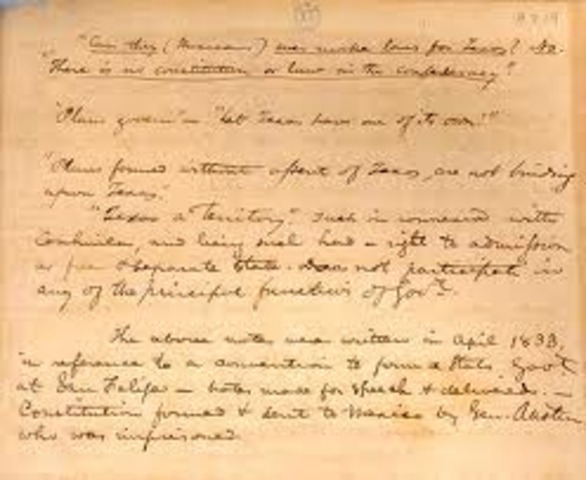 "Can they (Mexicans) ever make laws for Texas? No.
"There is no constitution or law in the confederacy."
"Plans govern" — "Let Texas have one of its own!"
"Plans formed without assent of Texas, are not binding
upon Texas."
"Texas a Territory" Such in connexion with
Coahuila, and being such had a right to admission
as free & separate State. Does not participate in
any of the principal functions of Govt.
The above notes were written in April 1833,
in reference to a convention to form a State Govt
at San Felipe — notes made for speech & delivered. —
Constitution formed & sent to Mexico by Gen. Austin
who was imprisoned.